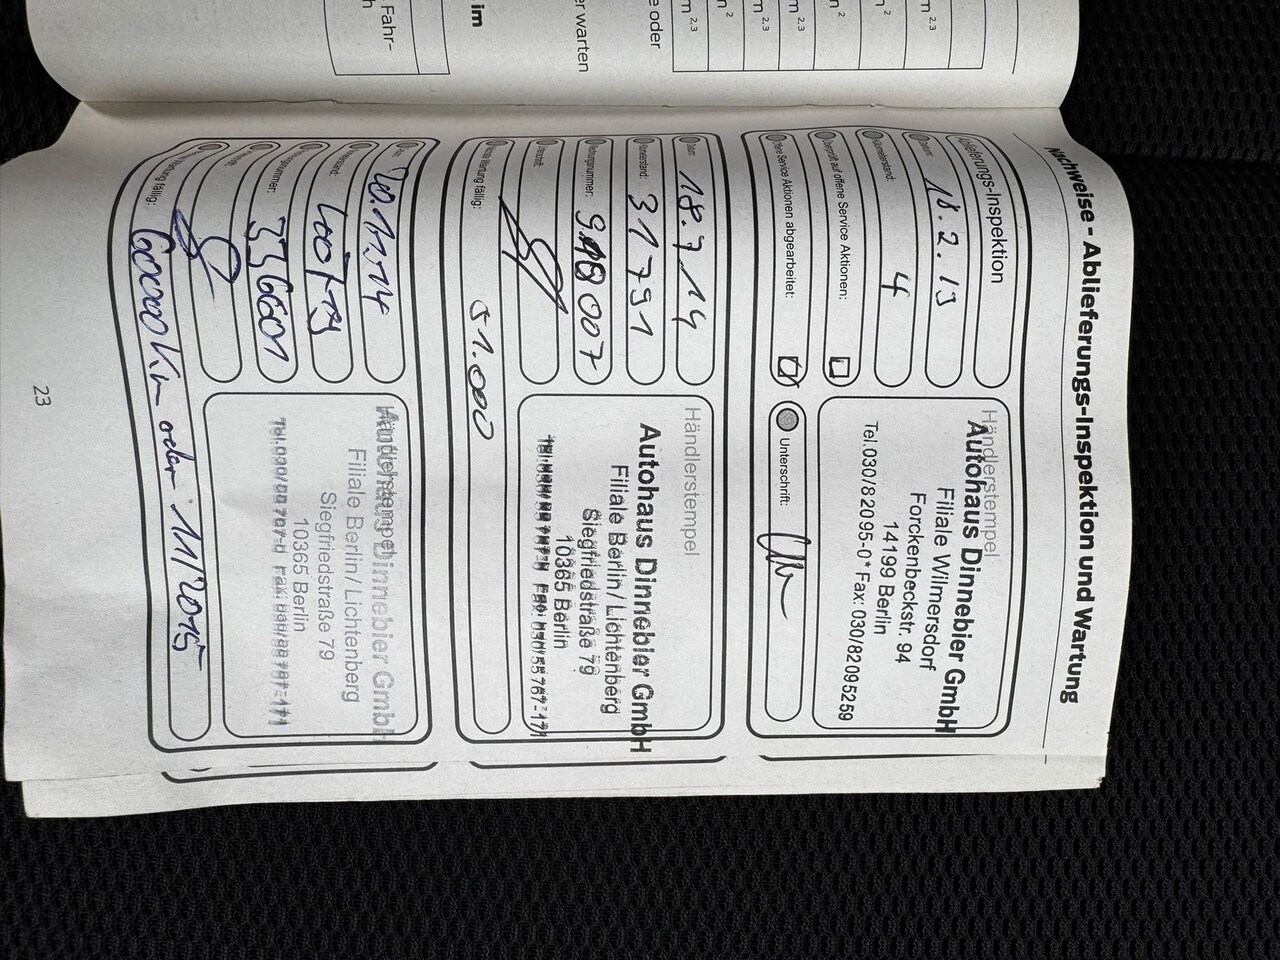 Nachweise - Ablieferungs-Inspektion und Wartung
Ablieferungs-Inspektion
Datum: 18.2.13
Kilometerstand: 4
Überprüft auf offene Service Aktionen:
Offene Service Aktionen abgearbeitet:
Händlerstempel
Autohaus Dinnebier GmbH
Filiale Wilmersdorf
Forckenbeckstr. 94
14199 Berlin
Tel.030/82095-0* Fax: 030/82095259
Unterschrift:
Datum: 18.7.14
Kilometerstand: 31791
Rechnungsnummer:
Unterschrift:
Nächste Wartung fällig: 51.000
Händlerstempel
Autohaus Dinnebier GmbH
Filiale Berlin/ Lichtenberg
Siegfriedstraße 79
10365 Berlin
20.11.14
Rechnungsnummer: 336601
Wartung fällig: 60000 Km oder 11/2015
Händlerstempel
Autohaus Dinnebier GmbH
Filiale Berlin/ Lichtenberg
Siegfriedstraße 79
10365 Berlin
23
Fahr-
im
er warten
e oder
m 2,3
n 2
m 2,3
m 2,3
n 2
n 2
m 2,3